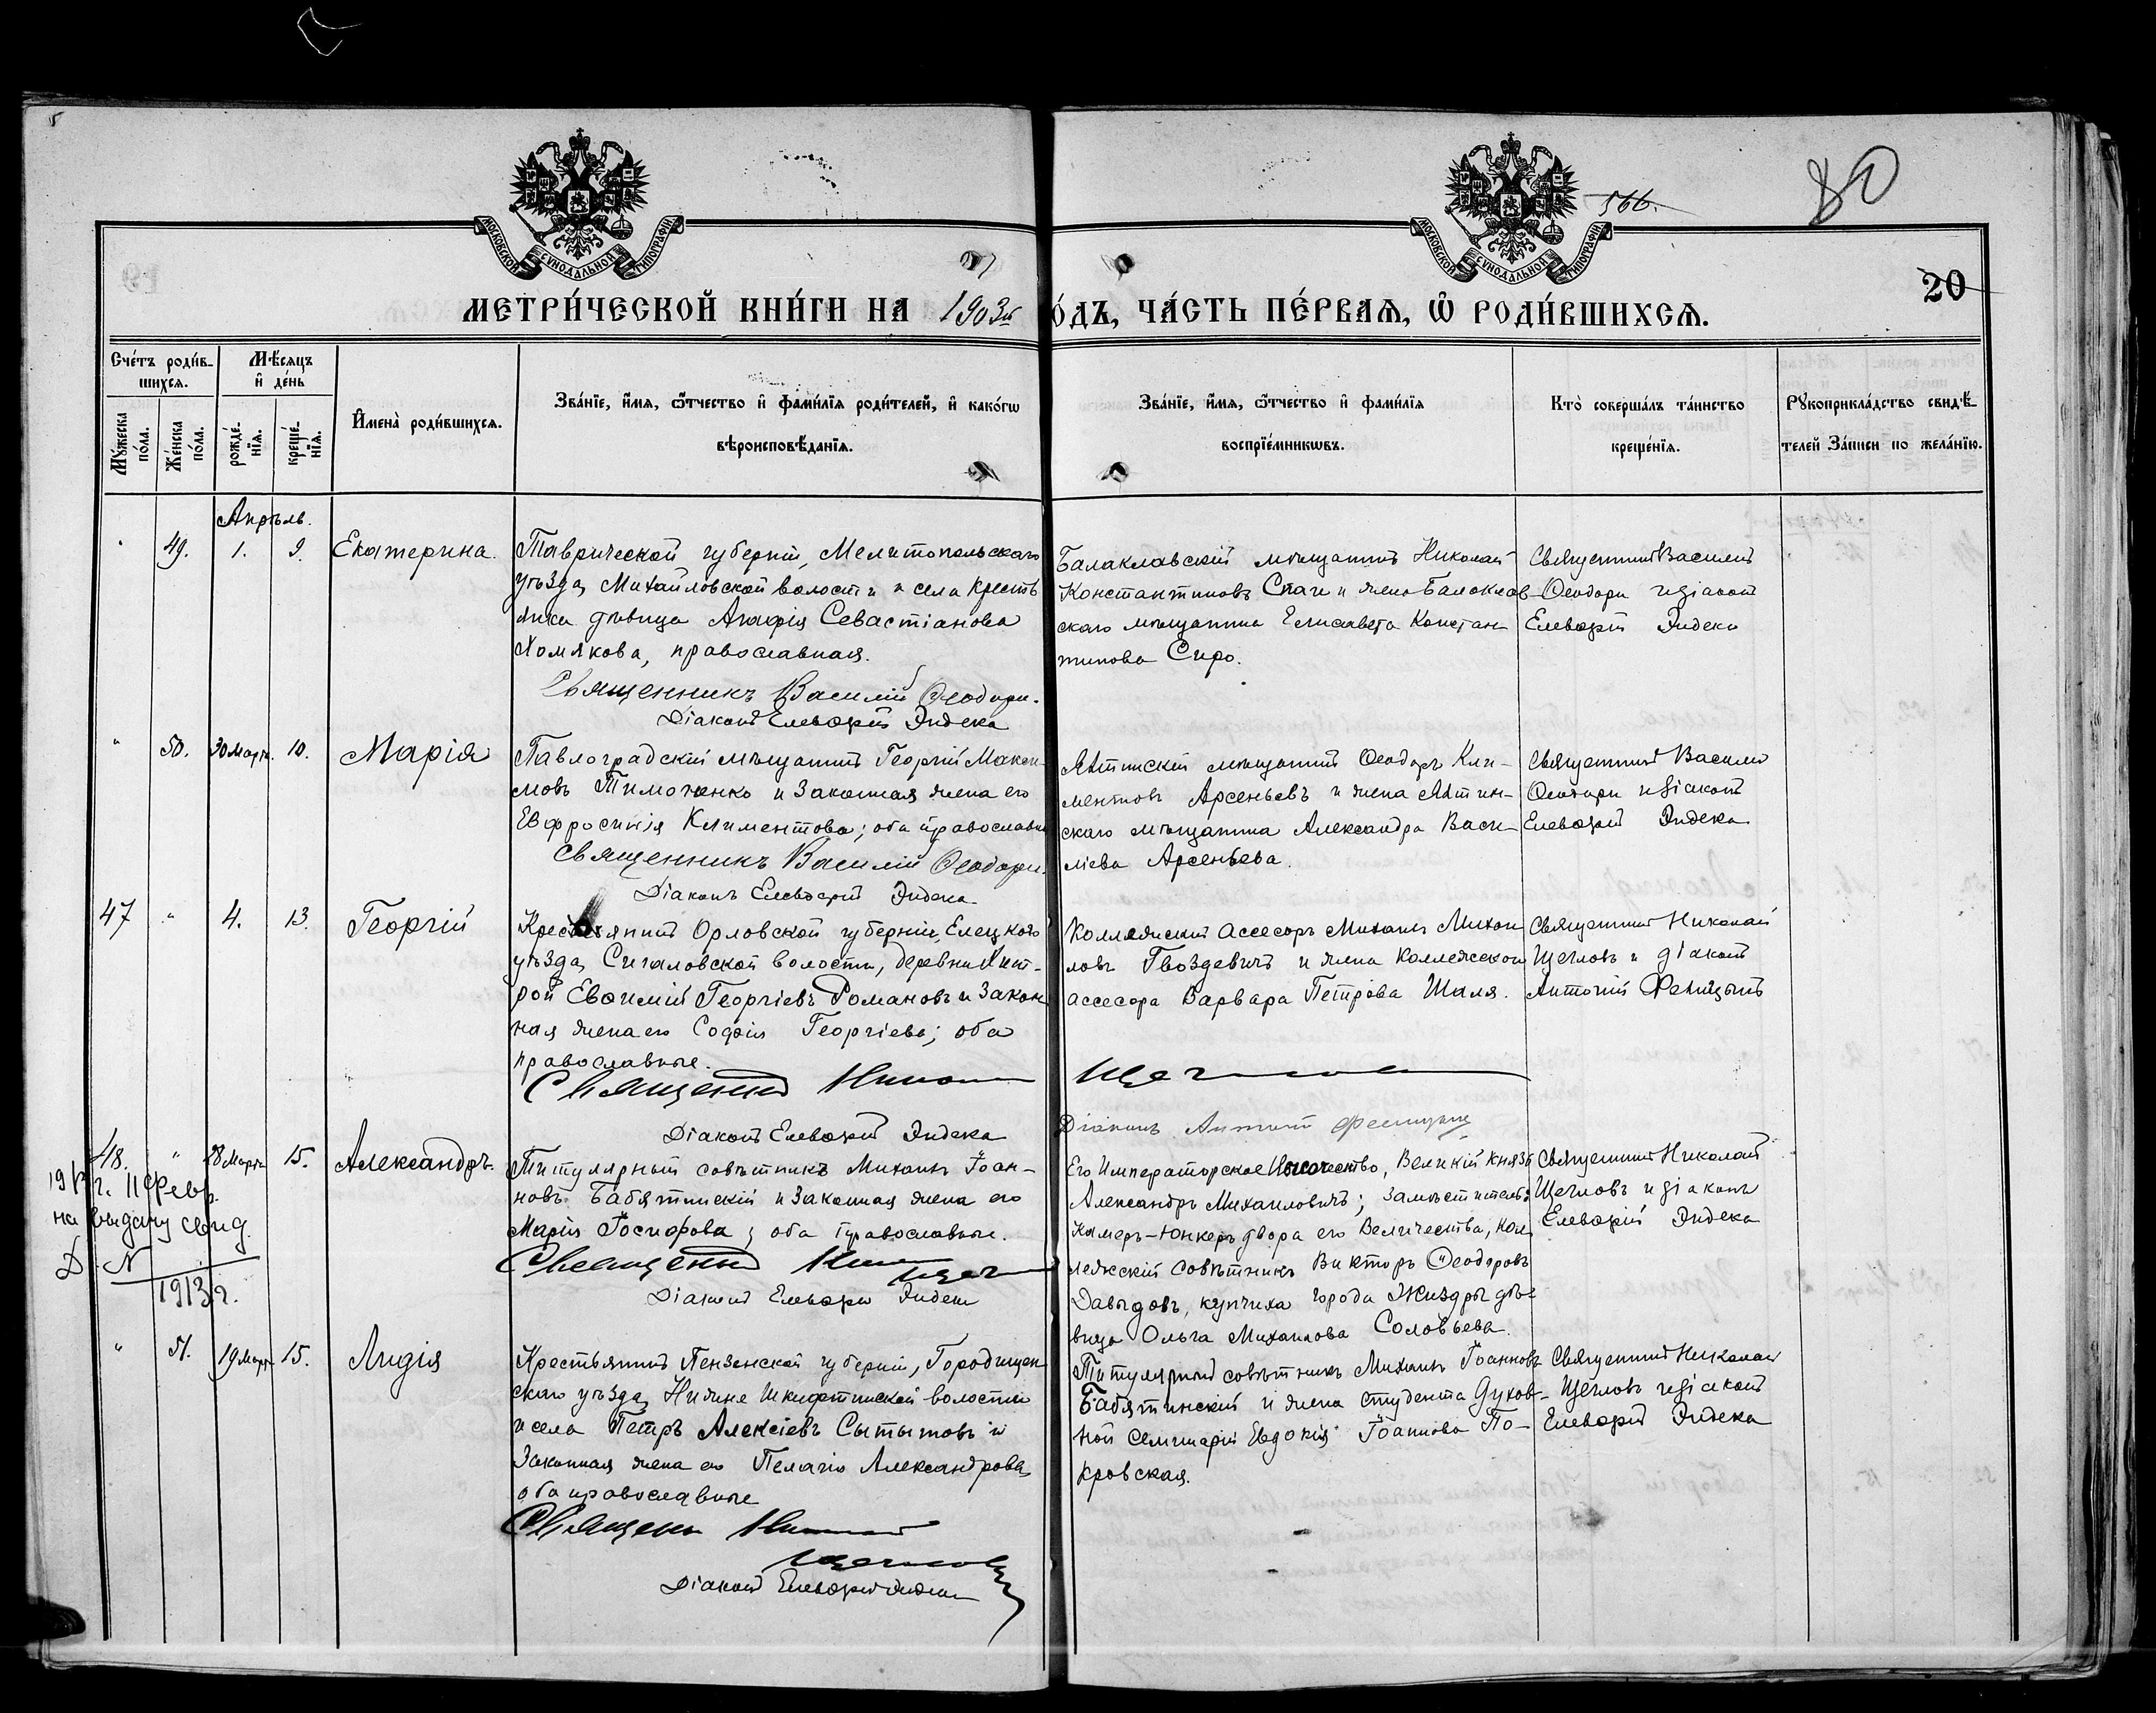 566.
80
20
МОСКОВСКОЙ СѴНОДАЛЬНОЙ ТИПОГРАФІИ
МОСКОВСКОЙ СѴНОДАЛЬНОЙ ТИПОГРАФІИ
МЕТРИ́ЧЕСКОЙ КНИ́ГИ НА 1903й
О́ДЪ, ЧА́СТЬ ПЕ́РВАѦ, Ѡ҆ РОДИ́ВШИХСѦ.
Сче́тъ роди́в-
шихся.
Мѣ́сяцъ
и҆ де́нь
Мꙋ́жеска
по́ла.
Же́нска
по́ла.
рожде́-
нїя.
креще́-
нїя.
И҆мена̀ роди́вшихся.
Зва́нїе, и҆́мя, ѻ҆́тчество и҆ фами́лїя роди́телей, и҆ како́гѡ
вѣроисповѣ́данїя.
Зва́нїе, и҆́мя, ѻ҆́тчество и҆ фами́лїя
воспрїе́мникѡвъ.
Кто̀ соверша́лъ та́инство
креще́нїя.
Рꙋкоприкла́дство свидѣ́-
телей За́писи по жела́нїю.
Апрѣль.
" 49. 1. 9. Екатерина.
Таврической губерніи, Мелитопольскаго
уѣзда, Михайловской волости и села кресть
янка дѣвица Агафія Севастіанова
Хомякова, православная.
Священникъ Василій Ѳеодори.
Діаконъ Елевѳерій Эндека
Балаклавскій мѣщанинъ Николай
Константиновъ Спаги и жена Балаклав
скаго мѣщанина Елисавета Констан
тинова Сиро.
Священникъ Василій
Ѳеодори и діаконъ
Елевѳерій Эндека
" 50. 30 Марта. 10. Марія
Павлоградскій мѣщанинъ Георгій Макси-
мовъ Тимоченко и законная жена его
Евфросинія Климентова; оба православные
Священникъ Василій Ѳеодори.
Діаконъ Елевѳерій Эндека
Ялтинскій мѣщанинъ Ѳеодоръ Кли-
ментовъ Арсеньевъ и жена Ялтин-
скаго мѣщанина Александра Васи-
ліева Арсеньева.
Священникъ Василій
Ѳеодори и діаконъ
Елевѳерій Эндека
47 " 4. 13. Георгій
Крестьянинъ Орловской губерніи, Елецкаго
уѣзда, волости, деревни
рой Евѳимій Георгіевъ Романовъ и закон
ная жена его Софія Георгіева; оба
православные.
Священникъ Николай Щегловъ
Діаконъ Елевѳерій Эндека
Коллежскій Ассесоръ Михаилъ Михаи
ловъ Гвоздевичъ и жена Коллежскаго
ассесора Варвара Петрова Шаля.
Діаконъ Антоній
Священникъ Николай
Щегловъ и діаконъ
Антоній
48. " 28 Марта 15. Александръ.
г. 11 Февр.
на выдачу свид.
N
1913 г.
Титулярный совѣтникъ Михаилъ Іоан-
новъ Бабятинскій и законная жена его
Марія Іосифова; оба православные.
Священникъ Николай Щегловъ
Діаконъ Елевѳерій Эндека
Его Императорское Высочество, Великій Князь
Александръ Михаиловичъ; заместитель:
Камеръ-Юнкеръ двора его Величества, Кол
лежскій совѣтникъ Викторъ Ѳеодоровъ
Давыдовъ, купчиха города Жиздры дѣ-
вица Ольга Михаилова Соловьева.
Священникъ Николай
Щегловъ и діаконъ
Елевѳерій Эндека
" 51. 19 Марта 15. Лидія
Крестьянинъ Пензенской губерніи, Городищен
скаго уѣзда, Нижне Шкафтинской волости
и села Петръ Алексіевъ Сытытовъ и
законная жена его Пелагія Александрова,
оба православные
Священникъ Николай
Щегловъ
Діаконъ Елевѳерій Эндека
Титулярный совѣтникъ Михаилъ Іоанновъ
Бабятинскій и жена студента Духов-
ной семинаріи Евдокія Іоаннова По-
кровская.
Священникъ Николай
Щегловъ и діаконъ
Елевѳерій Эндека